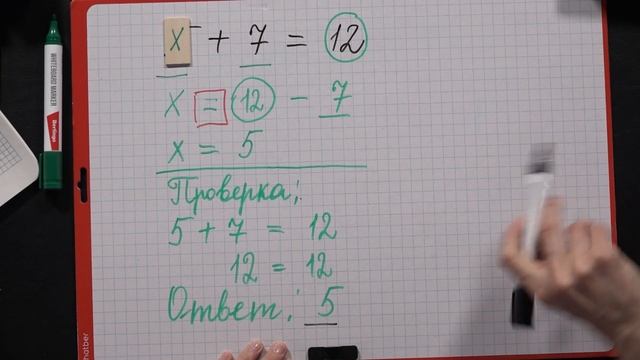 x + 7 = 12
x = 12 - 7
x = 5
Проверка:
5 + 7 = 12
12 = 12
Ответ: 5
WHITEBOARD MARKER
Berlingo